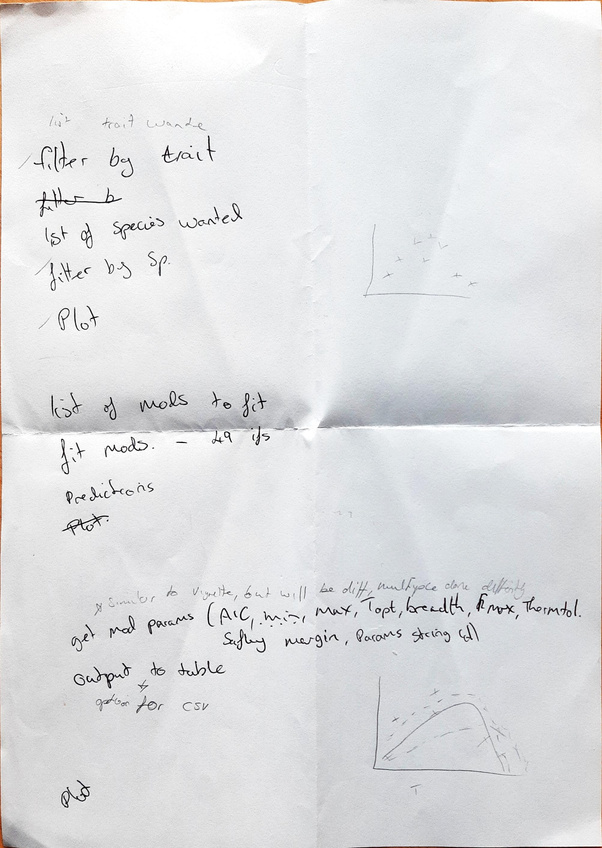 list trait wande
filter by trait
filter b
list of species wanted
filter by Sp.
Plot
list of mods to fit
fit mods. - 49 ifs
Predictions
Plot.
similar to vignette, but will be diff, multiple done
get mod params (AIC, min, max, Topt, breadth, Rmax, Thermtol.
Safety margin, Params string
output to table
option for csv
T
Plot